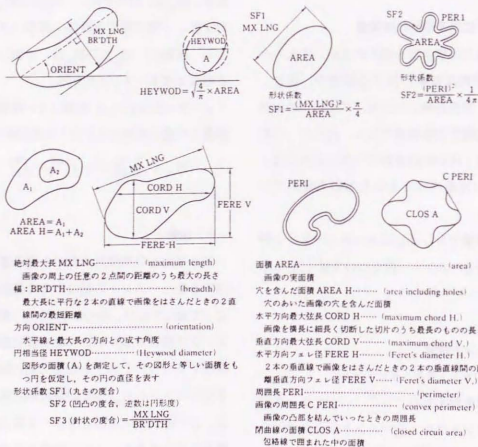 MX LNG
BR'DTH
ORIENT
HEYWOD
A
HEYWOD=√4/π ×AREA
SF1
MX LNG
AREA
形状係数
SF1=(MX LNG)²/AREA×π/4
SF2
PERI
AREA
形状係数
SF2=(PERI)²/AREA×1/4π
A₁
A₂
AREA=A₁
AREA H=A₁+A₂
MX LNG
CORD H
CORD V
FERE V
FERE H
PERI
C PERI
CLOS A
絶対最大長 MX LNG (maximum length)
画像の周上の任意の2点間の距離のうち最大の長さ
幅:BR'DTH (breadth)
最大長に平行な2本の直線で画像をはさんだときの2直
線間の最短距離
方向 ORIENT (orientation)
水平線と最大長の方向との成す角度
円相当径 HEYWOD (Heywood diameter)
図形の面積(A)を測定して,その図形と等しい面積をも
つ円を仮定し,その円の直径を表す
形状係数 SF1(丸さの度合)
SF2(凹凸の度合,逆数は円形度)
SF3(針状の度合)=MX LNG/BR'DTH
面積 AREA (area)
画像の実面積
穴を含んだ面積 AREA H (area including holes)
穴のあいた画像の穴を含んだ面積
水平方向最大弦長 CORD H (maximum chord H.)
画像を横長に細長く切断した切片のうち最長のものの長
垂直方向最大弦長 CORD V (maximum chord V.)
水平方向フェレ径 FERE H (Feret's diameter H.)
2本の垂直線で画像をはさんだときの2本の垂直線間の距
離垂直方向フェレ径 FERE V (Feret's diameter V.)
周囲長 PERI (perimeter)
画像の周囲長 C PERI (convex perimeter)
画像の凸部を結んでいったときの周囲長
閉曲線の面積 CLOS A (closed circuit area)
包絡線で囲まれた中の面積